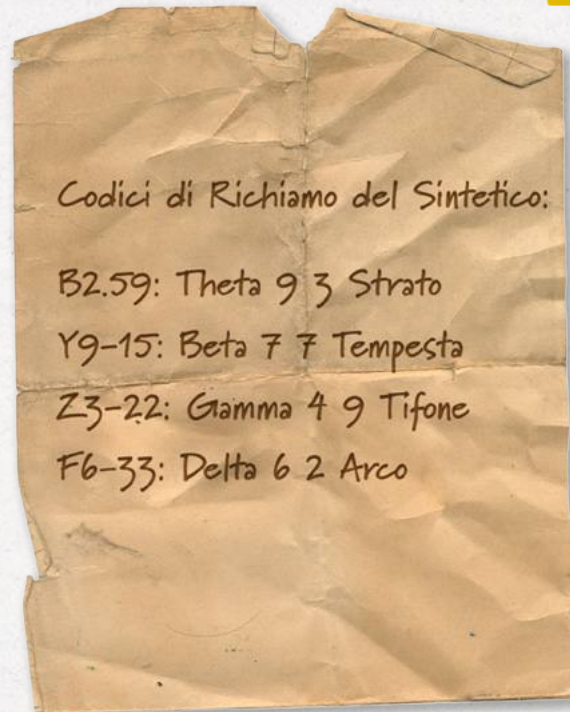 Codici di Richiamo del Sintetico:
B2.59: Theta 9 3 Strato
Y9-15: Beta 7 7 Tempesta
Z3-22: Gamma 4 9 Tifone
F6-33: Delta 6 2 Arco